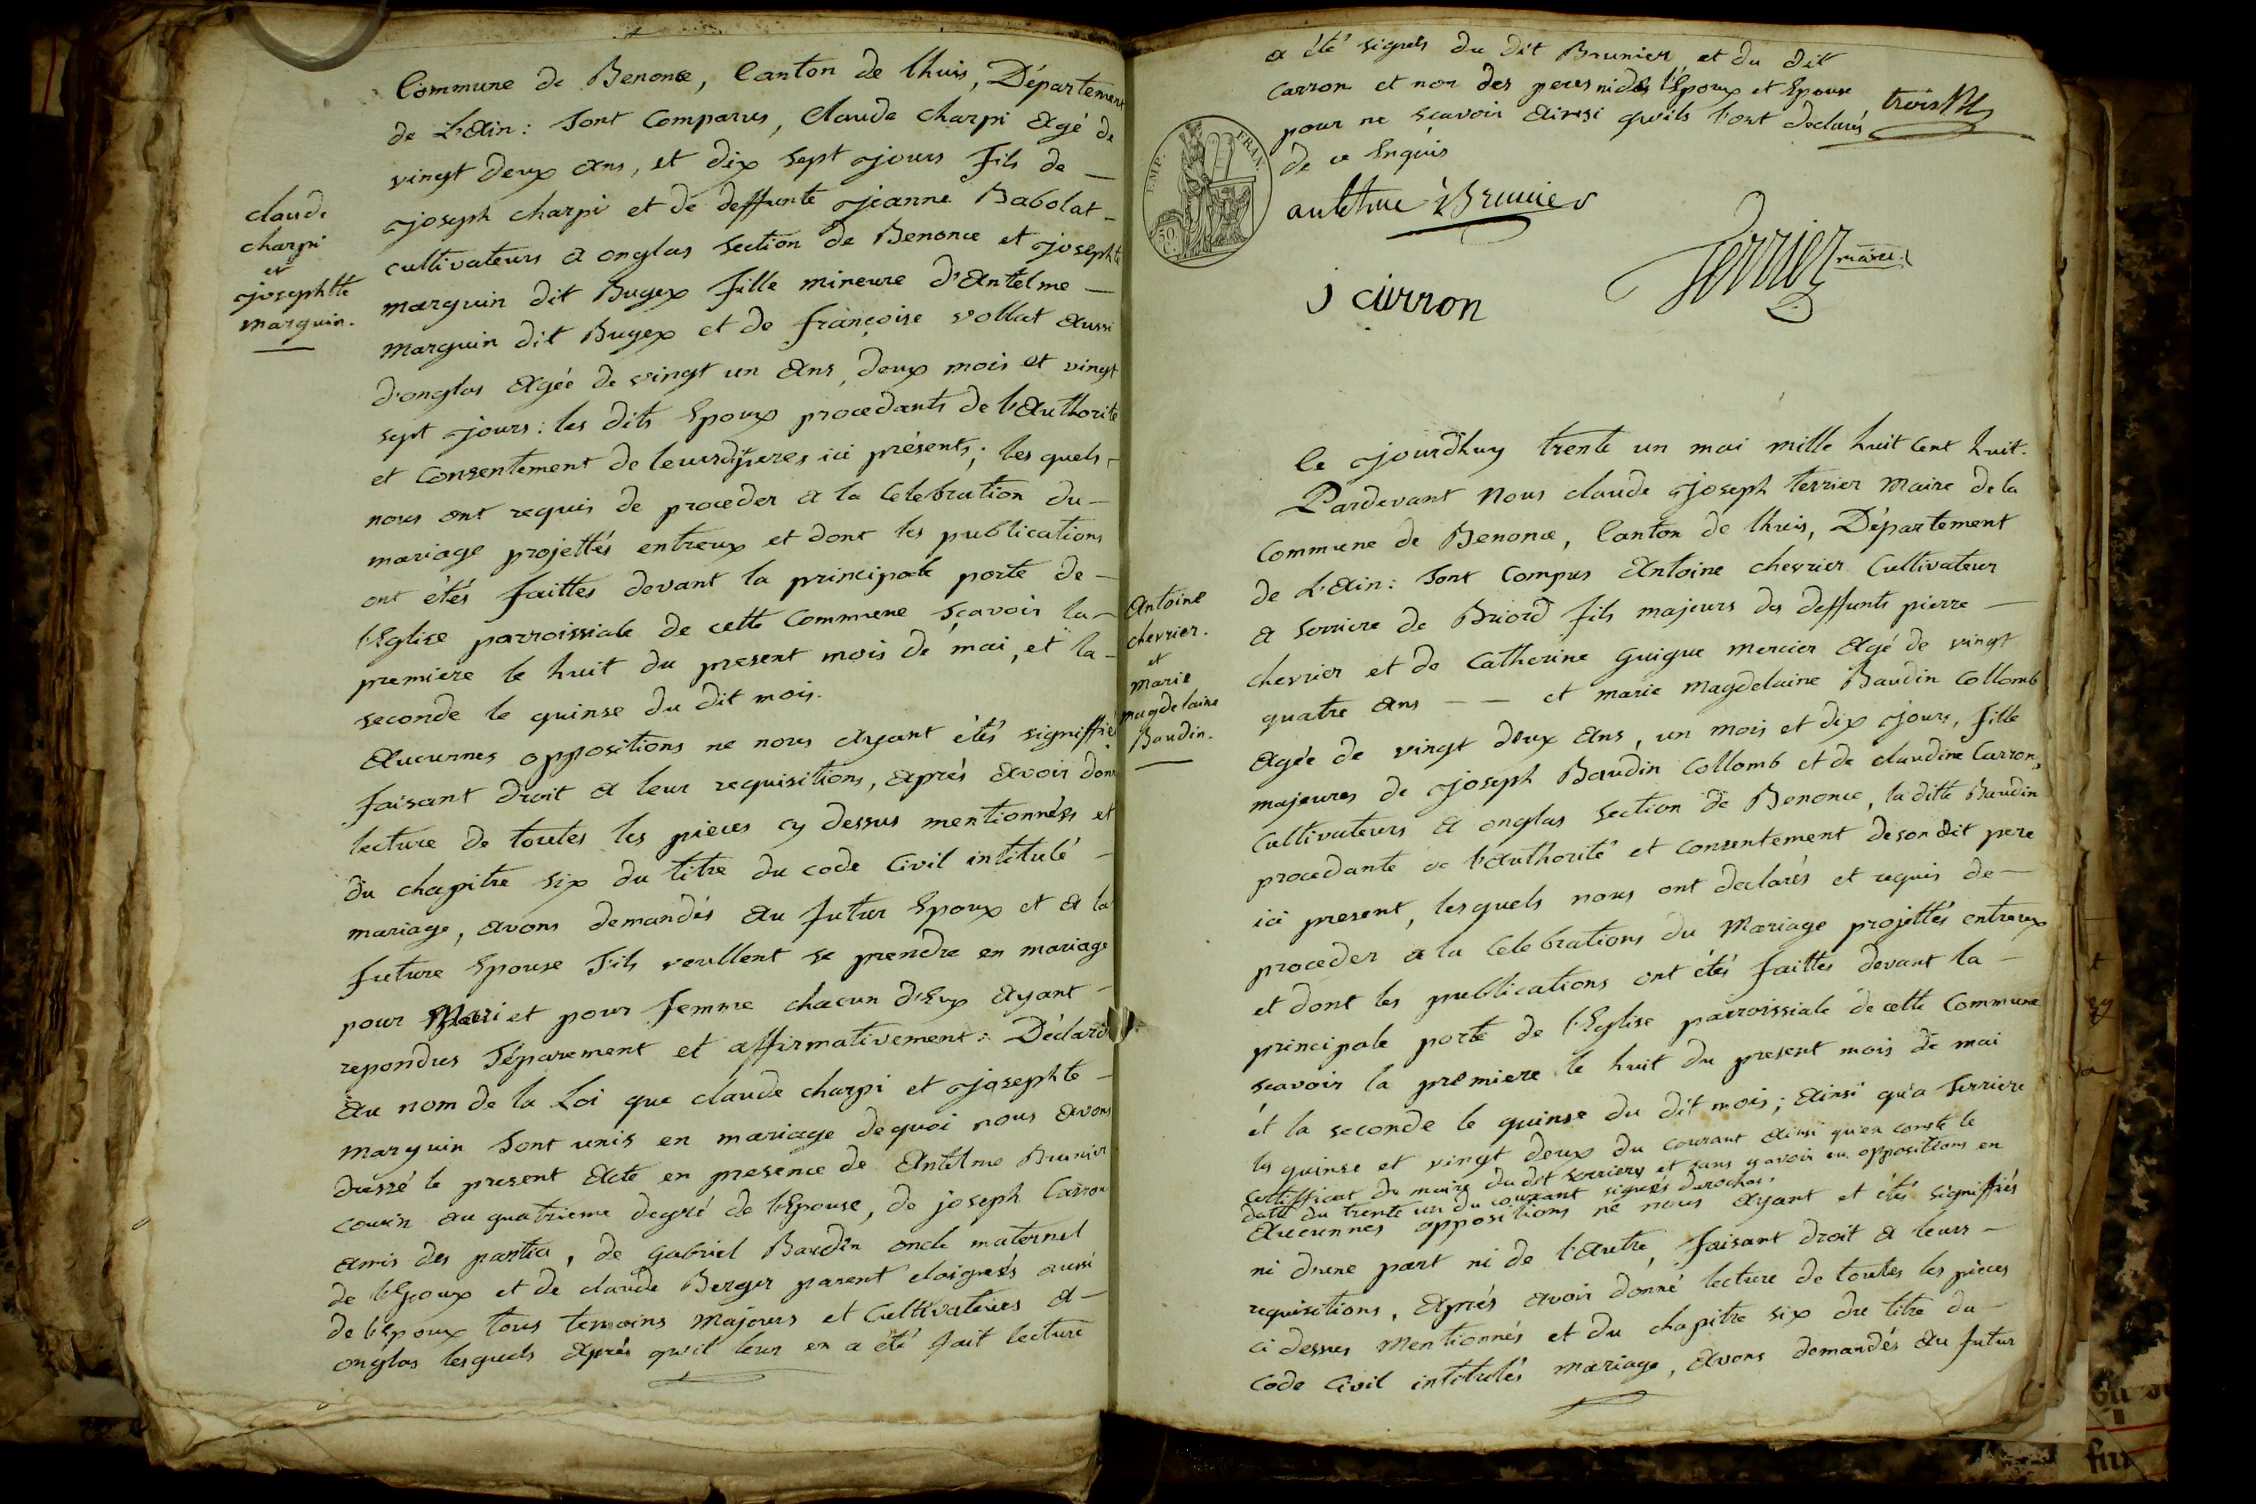 Commune de Benonce, Canton de lhuis, Département
de L'Ain: Sont Comparus, Claude charpi agé de
vingt deux ans, et dix sept jours fils de —
joseph charpi et de deffunte jeanne Babolat –
cultivateurs a onglas section de Benonce et josephte
marguin dit Bugex fille mineure d'Antelme —
marguin dit Bugex et de françoise vollat aussi
d'onglas agée de vingt un ans, deux mois et vingt
sept jours: les dits Epoux procedants de l'Authorité
et Consentement de leursdperes ici présents; les quels –
nous ont requis de proceder a la Celebration du –
mariage projettés entreux et dont les publications
ont étés faittes devant la principale porte de –
l'Eglise parroissiale de cette Commune sçavoir la –
premiere le huit du present mois de mai, et la –
seconde le quinse du dit mois.
Aucunnes oppositions ne nous ayant étés signiffié
faisant droit a leur requisitions, aprés avoir donn
lecture de toutes les pieces cy dessus mentionnés et
du chapitre six du titre du code Civil intitulé –
mariage, avons demandés au futur Epoux et a la
future Epouse S'ils veullent se prendre en mariage
pour Mari et pour femme chacun d'Eux ayant –
repondus Séparement et affirmativement: Déclaro
au nom de la Loi que claude charpi et josephte –
marguin Sont unis en mariage dequoi nous avons
dressé le present acte en presence de Antelme Brunier
cousin au quatrieme degré de l'Epouse, de joseph Carron
amis des partia, de Gabriel Baudin oncle maternel
de l'Epoux et de claude Berger parent eloignés aussi
de l'Epoux tous temoins majeurs et Cultivateurs a –
onglas lesquels aprés qu'il leur en a été fait lecture
claude
charpi
et
josephtte
marguin.
a été signés du dit Brunier et du dit
Carron et non des peres nides l'Epoux et Epouse
pour ne sçavoir ainsi qu'ils l'ont declarés
de ce Enquis
EMP. FRAN.
50
C.
antelme Brunier
Terrier maire
j carron
Ce jourdhuy trente un mai mille huit Cent huit.
Pardevant Nous claude joseph terrier Maire de la
Commune de Benonce, Canton de lhuis, Département
de L'Ain: Sont Compus Antoine chevrier Cultivateur
a Serriere de Briord fils majeurs des deffunts pierre —
chevrier et de Catherine Guigue mercier agé de vingt
quatre ans — — et marie Magdelaine Baudin Collomb
agée de vingt deux ans, un mois et dix jours, fille
majeures de joseph Baudin Collomb et de claudine Carron,
Cultivateurs a onglas section de Benonce, la ditte Baudin
procedante de l'authorité et consentement deson dit pere
ici present, lesquels nous ont declarés et requis de —
proceder a la Celebrations du Mariage projettés entreux
et dont les publications ont étés faittes devant la –
principale porte de l'Eglise parroissiale de cette Commune
sçavoir la premiere le huit du present mois de mai
et la seconde le quinse du dit mois; ainsi qu'a Serriere
les quinse et vingt deux du courant ainsi qu'en conste le
Certifficat du maire dudit Serriere et sans y avoir eu oppositions en
datte du trente un du courant signés Derochas.
Aucunnes oppositions ne nous ayant et étés signiffiés
ni d'une part ni de l'autre, faisant droit a leurs –
requisitions, aprés avoir donné lecture de toutes les pieces
ci dessus Mentionnés et du chapitre six du titre du –
Code Civil intitulés mariage, avons demandés au futur
Antoine
chevrier.
et
marie
magdelaine
Baudin.